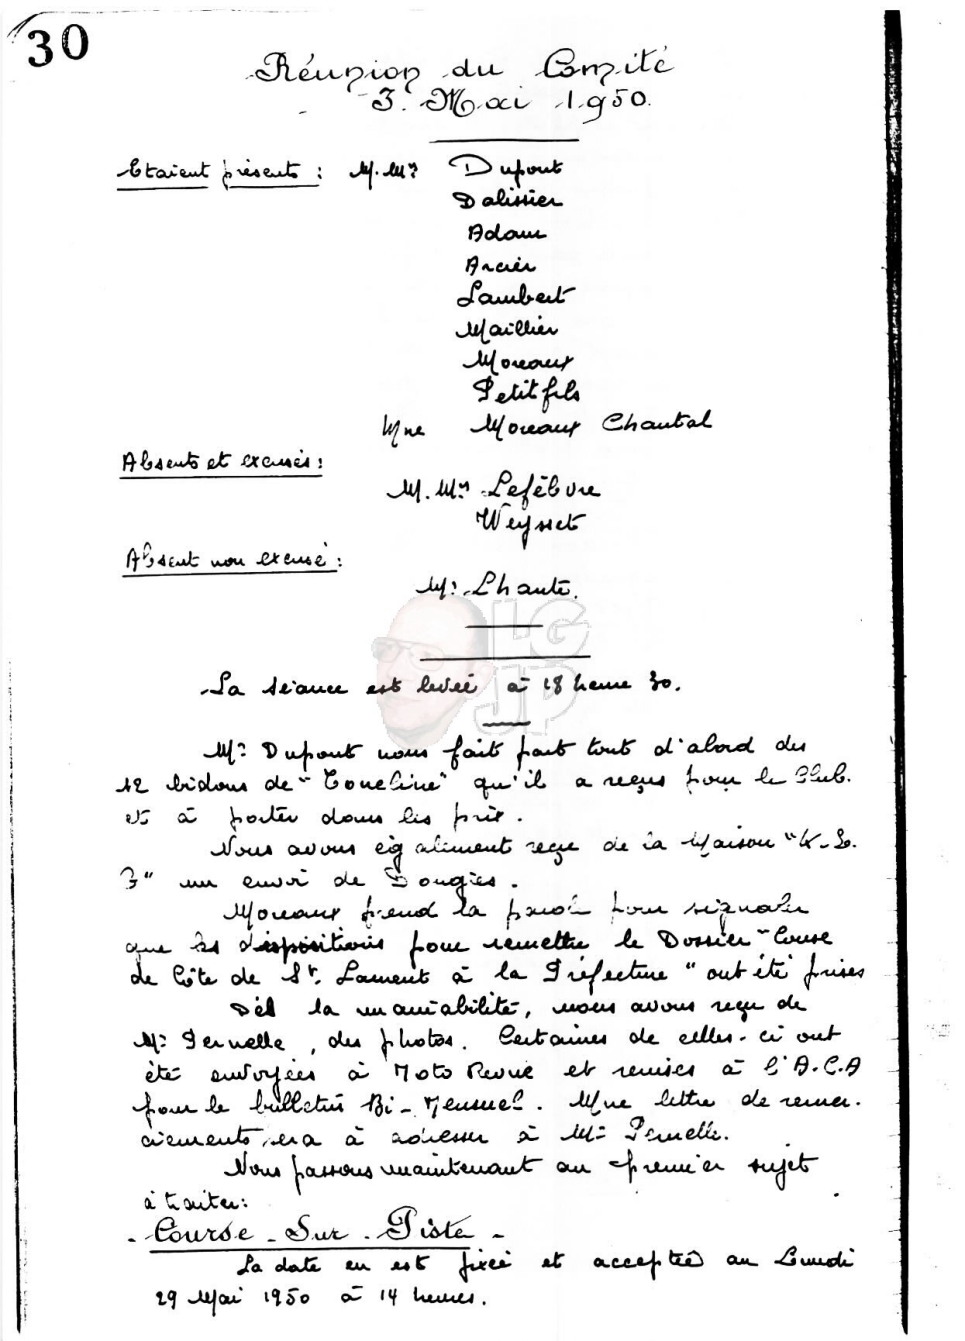 30
Réunion du Comité
3. Mai 1950.
Etaient présents : M.Mrs Dupont
Dalissier
Adam
Arcier
Lambert
Maillier
Moreaux
Petitfils
Mme Moreaux Chantal
Absents et excusés :
M.Mrs Lefèbvre
Weysset
Absent non excusé :
Mr. Lhante.
LG
JP
La séance est levée à 18 heure 30.
Mr. Dupont nous fait part tout d'abord des
12 bidons de "Toneline" qu'il a reçus pour le Club.
et à porter dans les prix.
Nous avons également reçu de la Maison "K-L.
G" un envoi de Bougies.
Moreaux prend la parole pour signaler
que les dispositions pour remettre le Dossier "Course
de Côte de St. Laurent à la Préfecture" ont été prises
De la maniabilité, nous avons reçu de
Mr. Pernelle, des photos. Certaines de celles-ci ont
été envoyées à Moto Revue et remises à l'A.C.A
pour le bulletin Bi-Mensuel. Une lettre de remer-
ciements sera à adresser à Mr Pernelle.
Nous passons maintenant au premier sujet
à traiter:
- Course - Sur - Piste -
La date en est fixée et acceptée au Lundi
29 Mai 1950 à 14 heures.